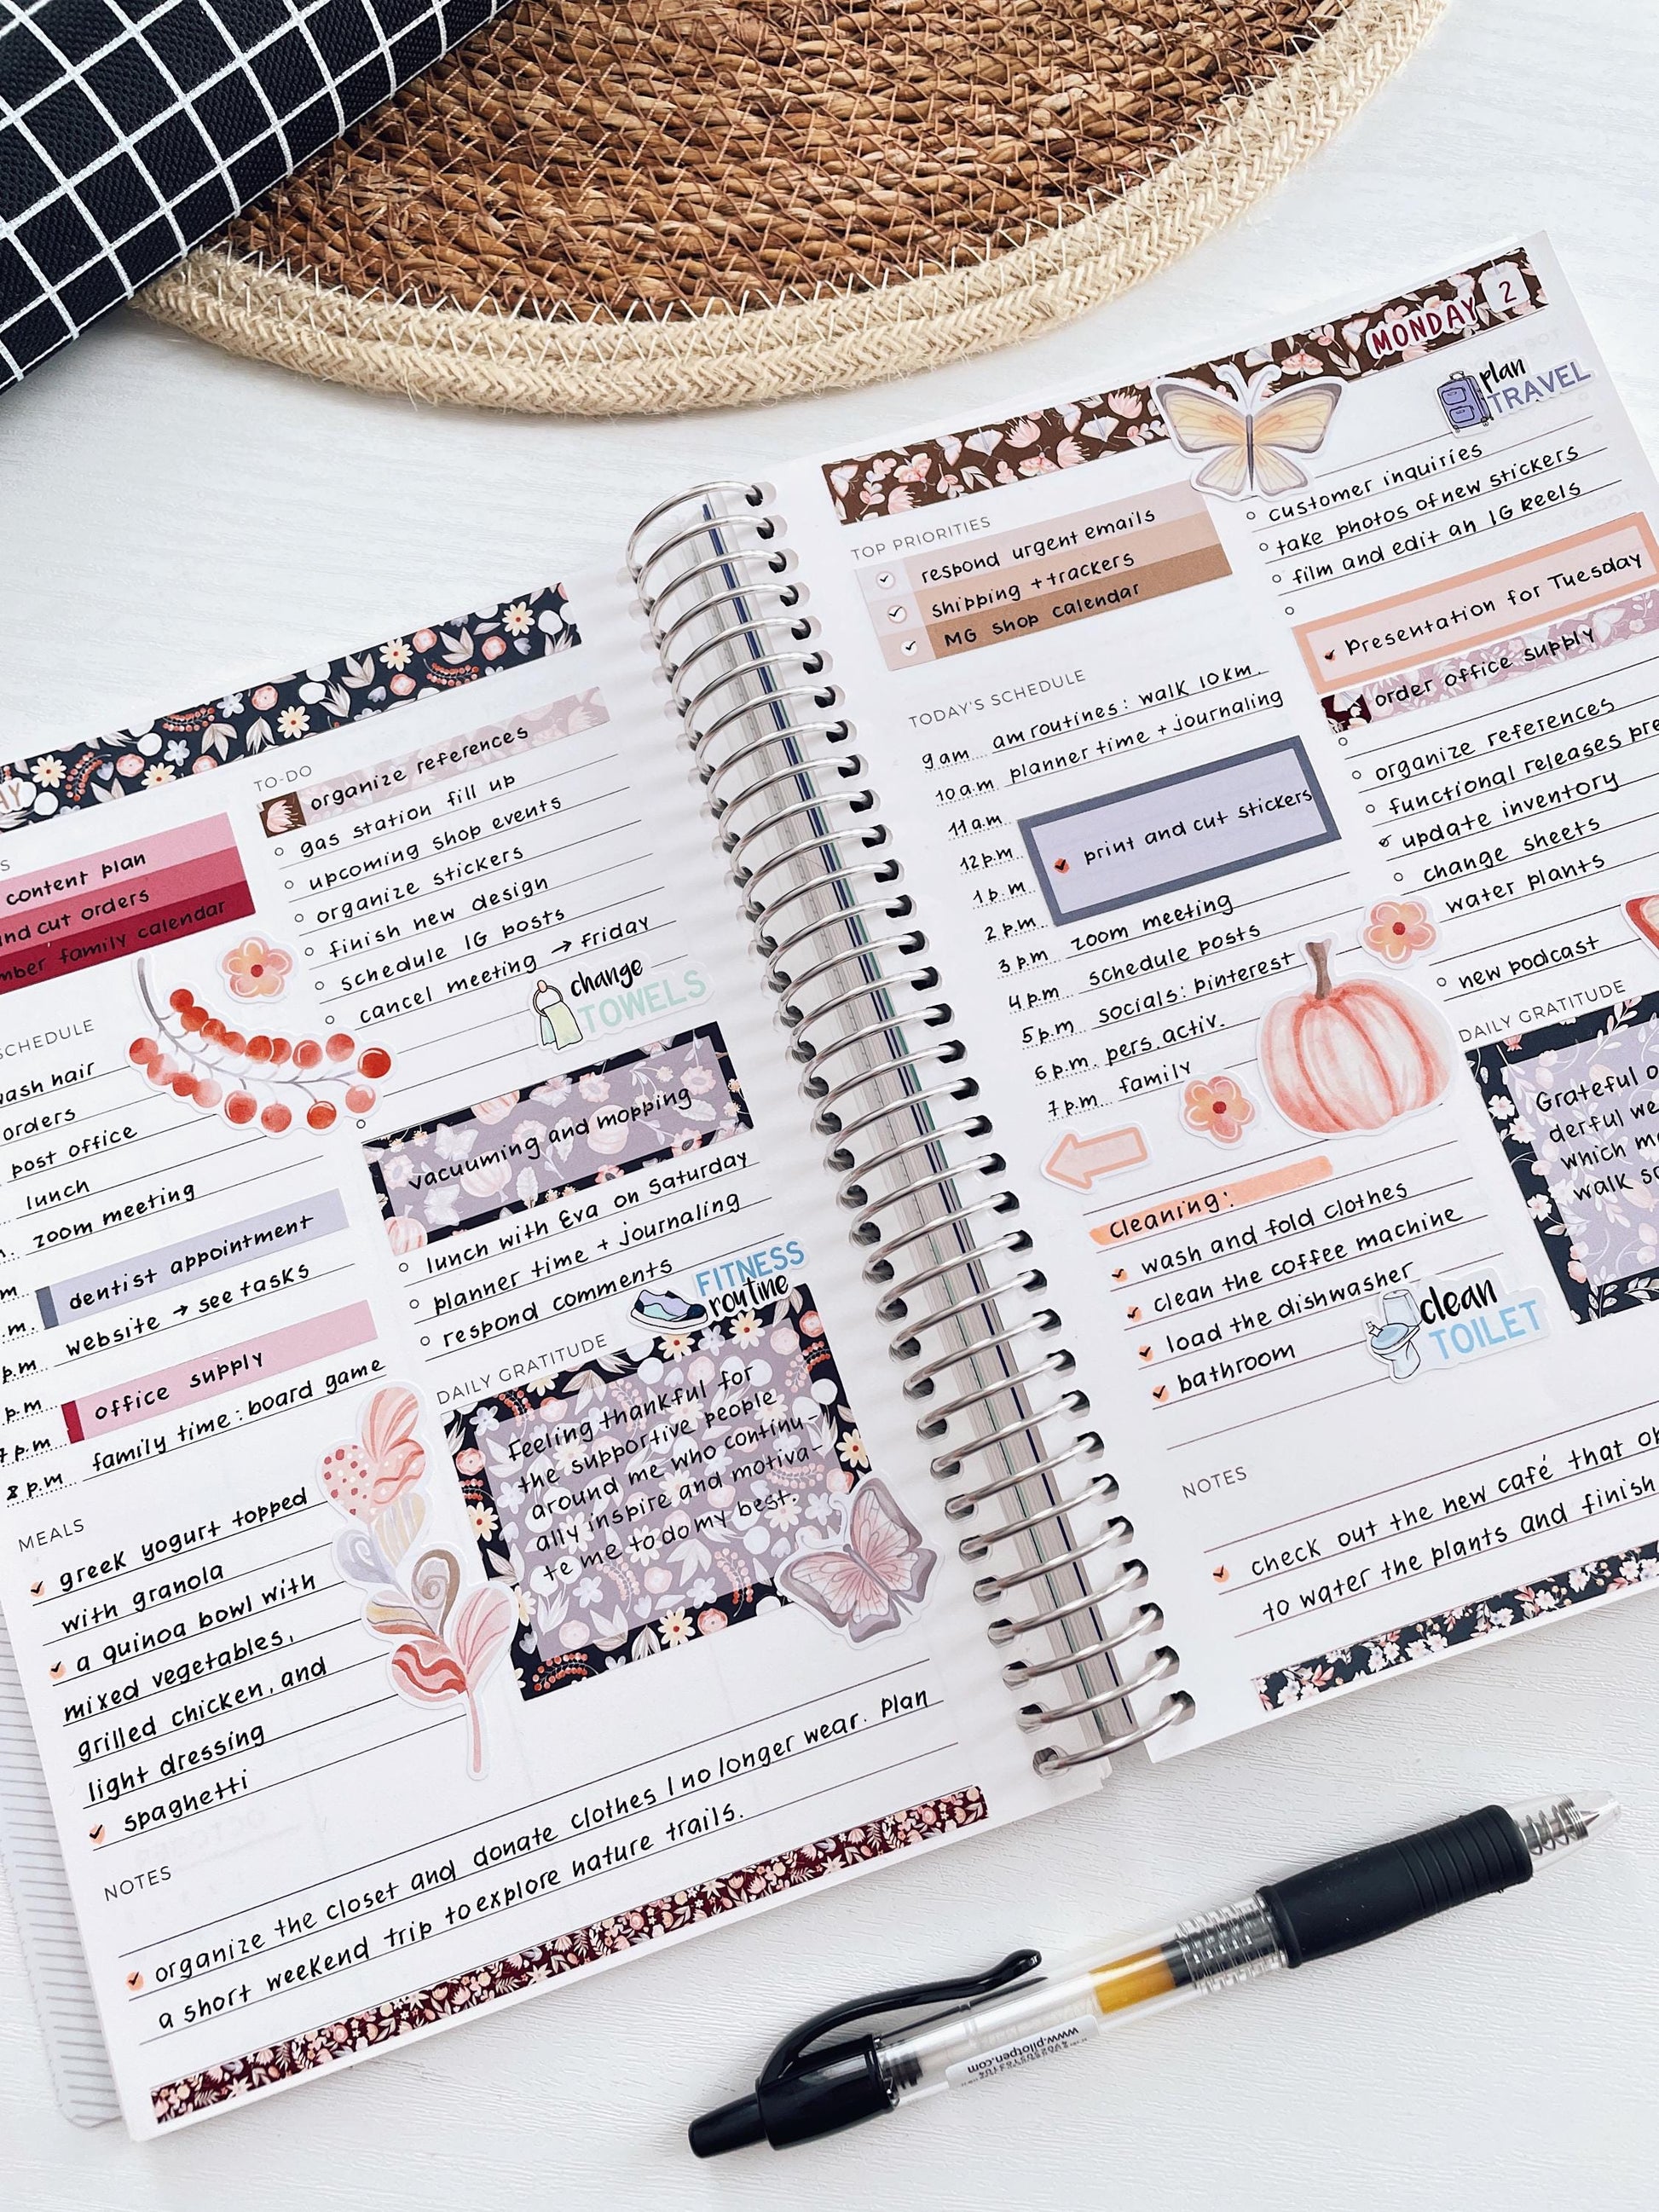 AY
TO-DO
content plan
and cut orders
family calendar
organize references
gas station fill up
upcoming shop events
organize stickers
finish new design
schedule IG posts
cancel meeting → Friday
change
TOWELS
SCHEDULE
wash hair
orders
post office
lunch
zoom meeting
dentist appointment
website → see tasks
p.m
office supply
7 p.m
family time: board game
8 p.m.
vacuuming and mopping
lunch with Eva on Saturday
planner time + journaling
respond comments
FITNESS
routine
DAILY GRATITUDE
Feeling thankful for
the supportive people
around me who continu-
ally inspire and motiva-
te me to do my best.
MEALS
greek yogurt topped
with granola
a quinoa bowl with
mixed vegetables,
grilled chicken, and
light dressing
spaghetti
NOTES
organize the closet and donate clothes I no longer wear. Plan
a short weekend trip to explore nature trails.
MONDAY 2
plan
TRAVEL
TOP PRIORITIES
respond urgent emails
shipping + trackers
MG Shop calendar
TODAY'S SCHEDULE
9 a.m. am routines: walk 10 km.
10 a.m. planner time + journaling
11 a.m.
12 p.m.
print and cut stickers
1 p.m.
2 p.m. zoom meeting
3 p.m. schedule posts
4 p.m. socials: pinterest
5 p.m. pers. activ.
6 p.m. family
7 p.m.
cleaning:
wash and fold clothes
clean the coffee machine
load the dishwasher
bathroom
clean
TOILET
customer inquiries
take photos of new stickers
film and edit an IG Reels
Presentation for Tuesday
order office supply
organize references
functional releases pre
update inventory
change sheets
water plants
new podcast
DAILY GRATITUDE
Grateful
derful we
which
walk
NOTES
check out the new café that
to water the plants and finish
www.pilotpen.com